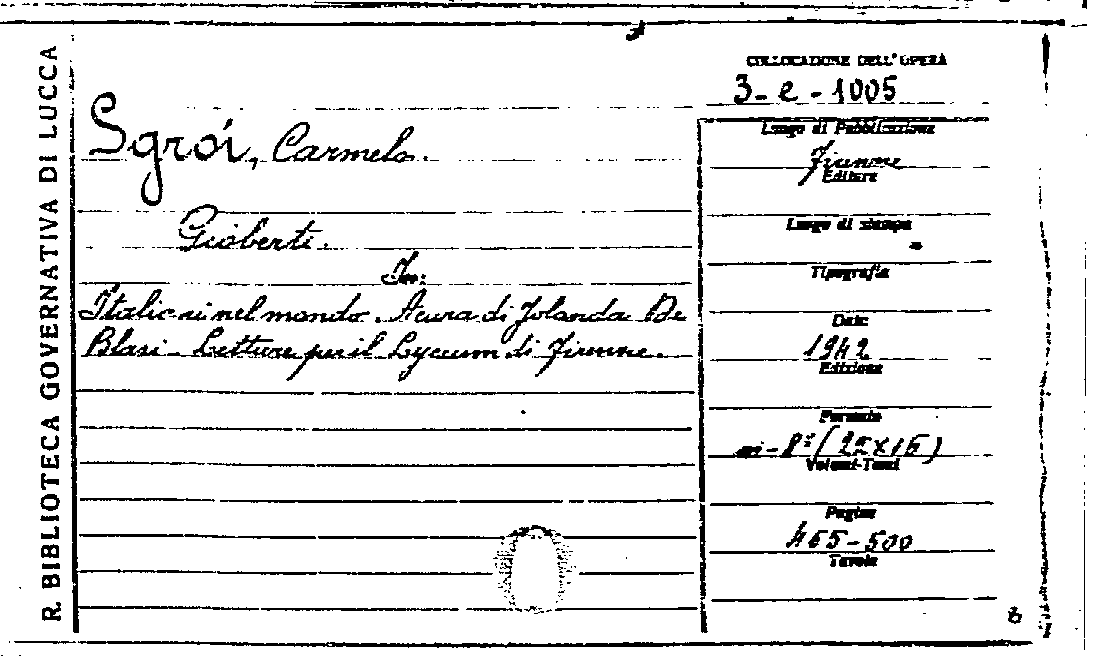 R. BIBLIOTECA GOVERNATIVA DI LUCCA
COLLOCAZIONE DELL'OPERA
3-e-1005
Sgroi, Carmelo.
Gioberti.
In:
Italiani nel mondo. A cura di Jolanda De
Blasi - Letture per il Lyceum di Firenze.
Luogo di Pubblicazione
Firenze
Editore
Luogo di stampa
Tipografia
Data
1942
Edizione
Formato
in-8º (22x16)
Volumi-Tomi
Pagine
465-500
Tavole